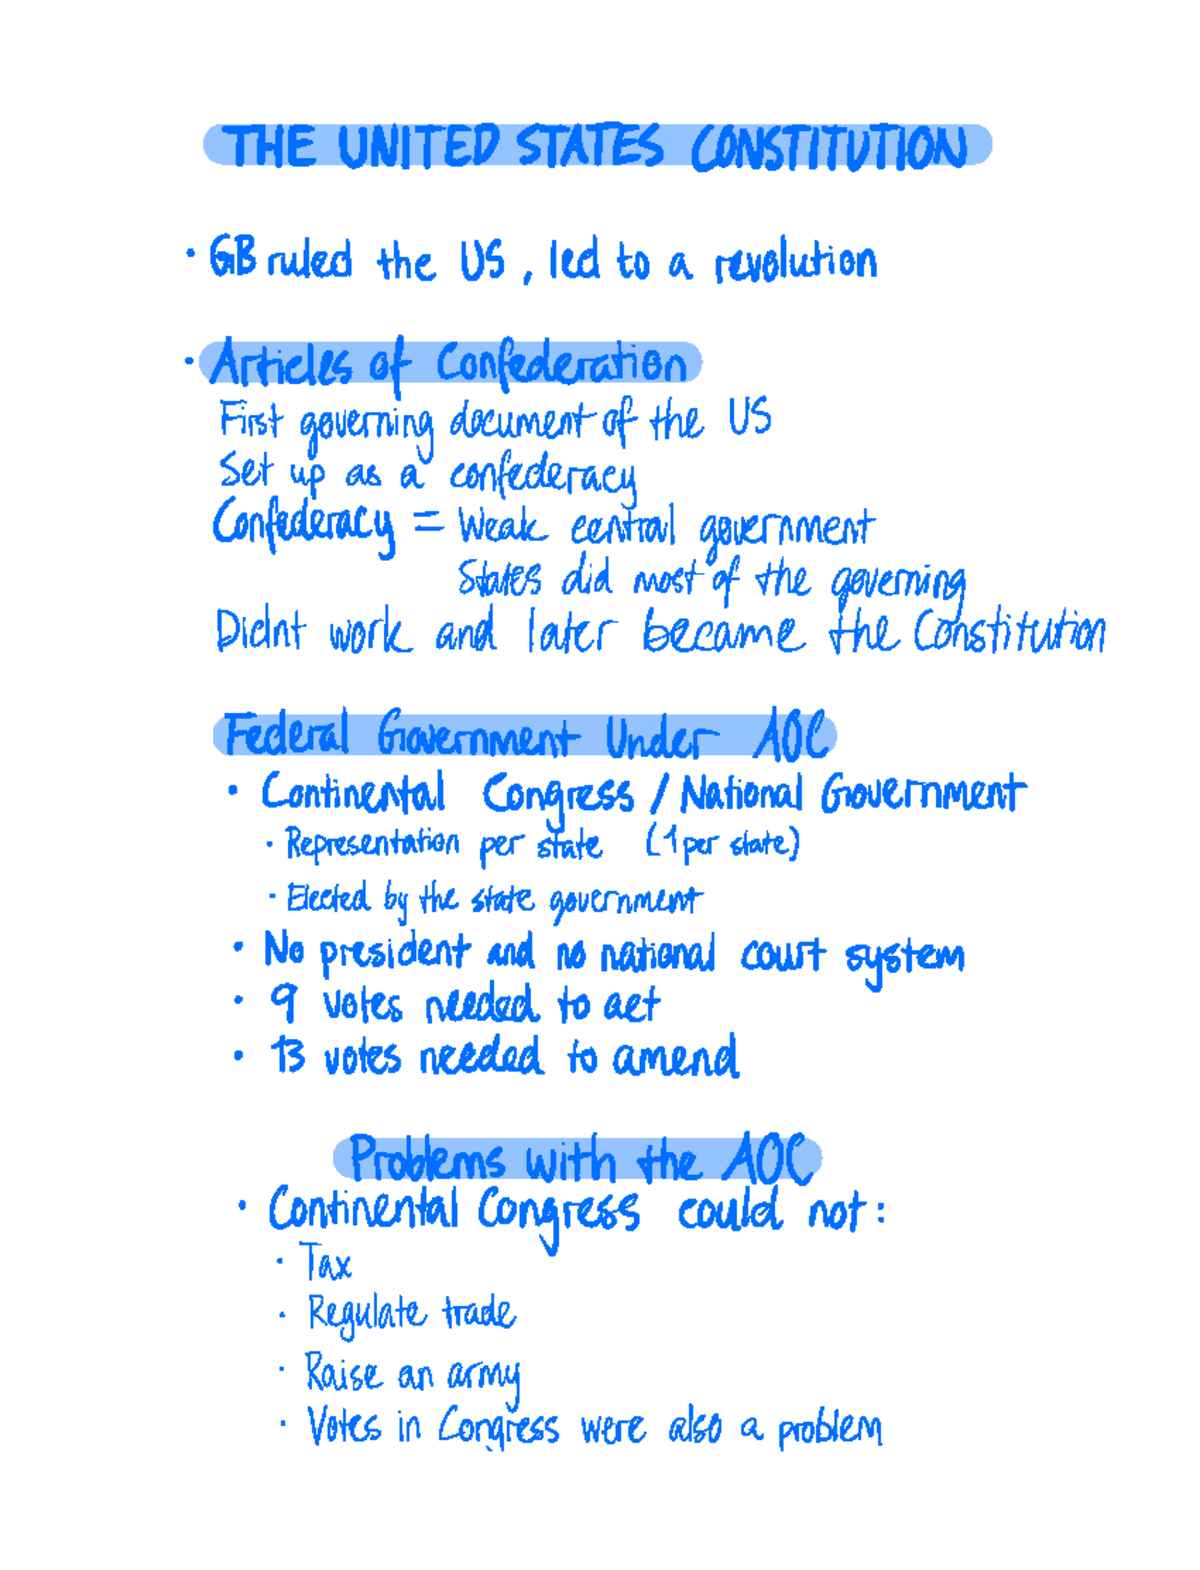 THE UNITED STATES CONSTITUTION
· GB ruled the US, led to a revolution
· Articles of Confederation
First governing document of the US
Set up as a confederacy
Confederacy = Weak central government
States did most of the governing
Didnt work and later became the Constitution
Federal Government Under AOC
· Continental Congress / National Government
· Representation per state (1 per state)
· Elected by the state government
· No president and no national court system
· 9 votes needed to act
· 13 votes needed to amend
Problems with the AOC
· Continental Congress could not:
· Tax
· Regulate trade
· Raise an army
· Votes in Congress were also a problem